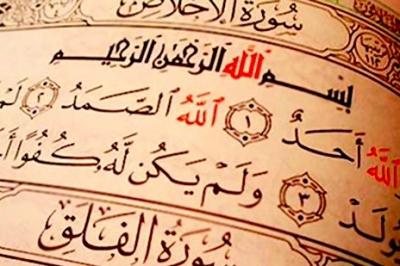 سُورَةُ الْإِخْلَاصِ
بِسْمِ اللَّهِ الرَّحْمَٰنِ الرَّحِيمِ
اللَّهُ أَحَدٌ ١ اللَّهُ الصَّمَدُ ٢ لَمْ
ولَدْ ٣ وَلَمْ يَكُن لَّهُ كُفُوًا
سُورَةُ الْفَلَقِ